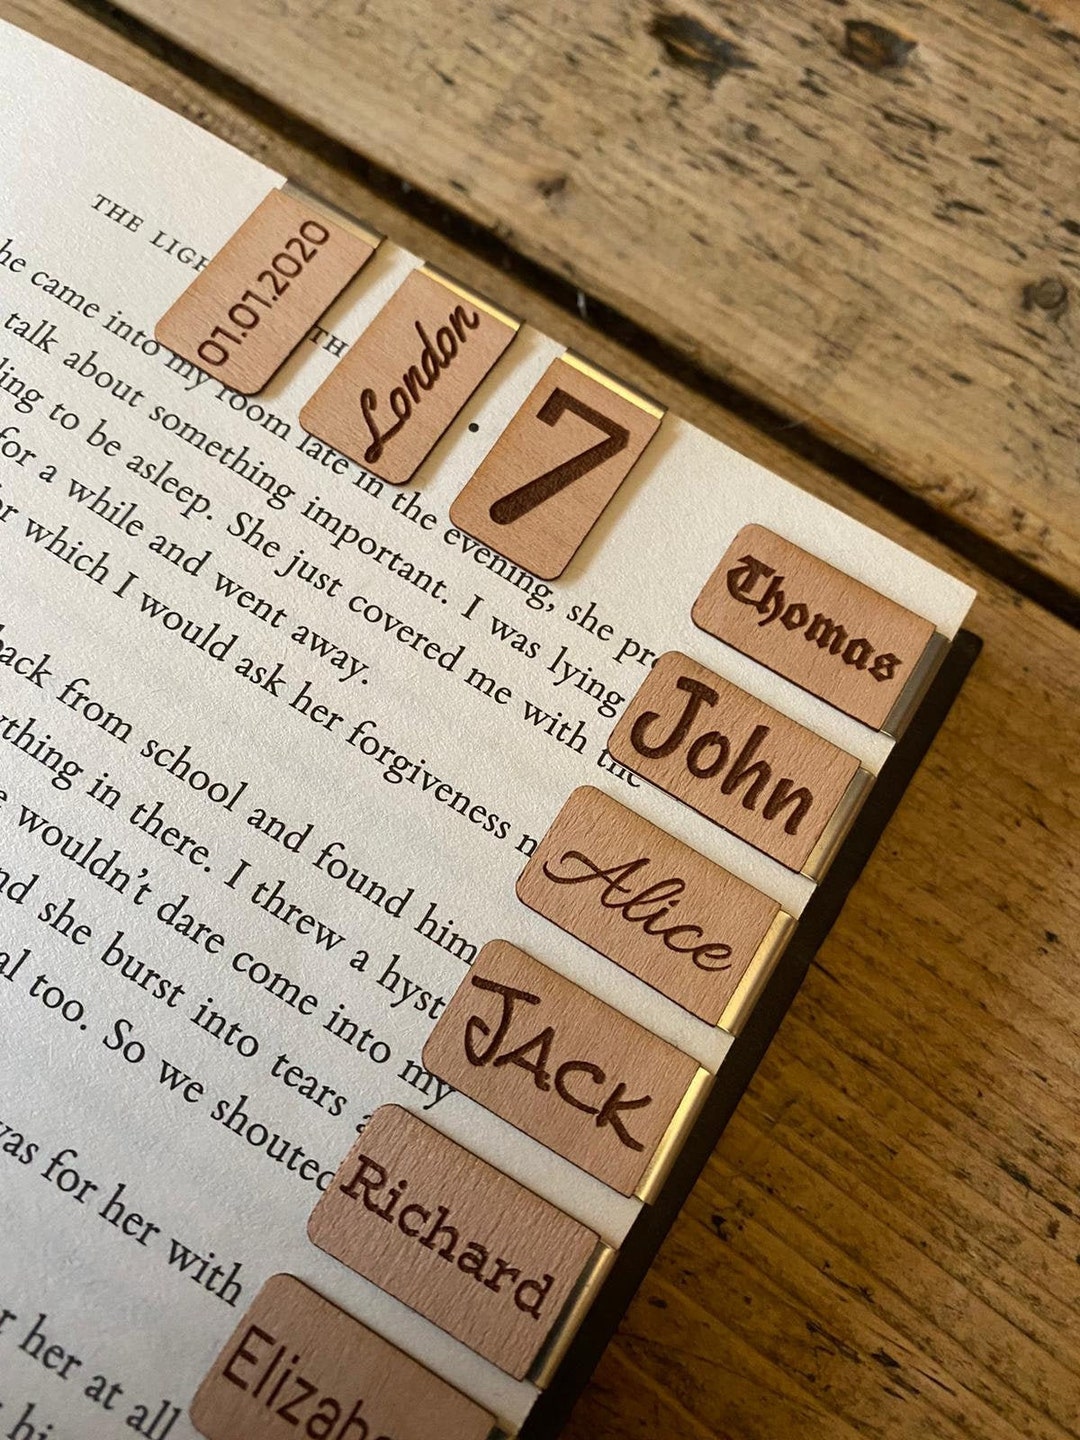 01.01.2020
London
7
Thomas
John
Alice
JACK
Richard
Elizab
THE LIG TH
he came into my room late in the evening, she pr
talk about something important. I was lying
ling to be asleep. She just covered me with the
for a while and went away.
or which I would ask her forgiveness n
back from school and found him
ything in there. I threw a hyst
e wouldn't dare come into my
nd she burst into tears
al too. So we shouted
was for her with
r her at all